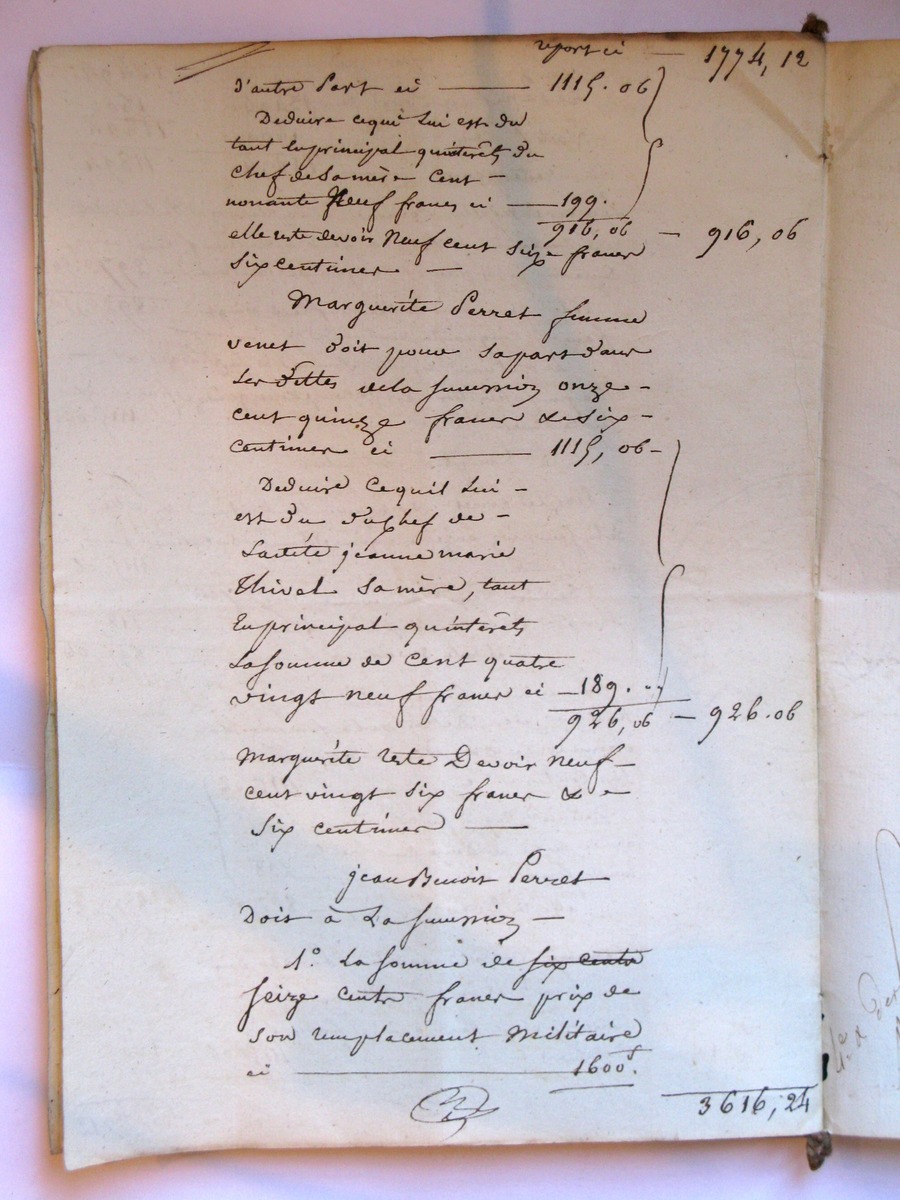 report ci — 1774, 12
d'autre Part ci — 1115. 06
Deduire cequi lui est du
tant Enprincipal qu'interêts du
chef desamère cent —
nonante Neuf francs ci — 199.
916, 06 — 916, 06
elle reste devoir Neuf cent seize francs
six centimes —
Marguerite Perret femme
venet doit pour sapart dans
les dittes dela succession onze —
cent quinze francs & six —
centimes ci — 1115, 06 —
Deduire cequil lui —
est du du chef de —
Ladite jeanne marie
Thivel samère, tant
Enprincipal qu'interêts
Lasomme de cent quatre
vingt neuf francs ci — 189. "
926, 06 — 926. 06
Marguerite reste Devoir neuf —
cent vingt six francs &
six centimes —
jean Benoit Perret
Doit à La succession —
1.° La somme de six cents
seize cents francs prix de
son remplacement Militaire
ci — 1600f.
3616, 24